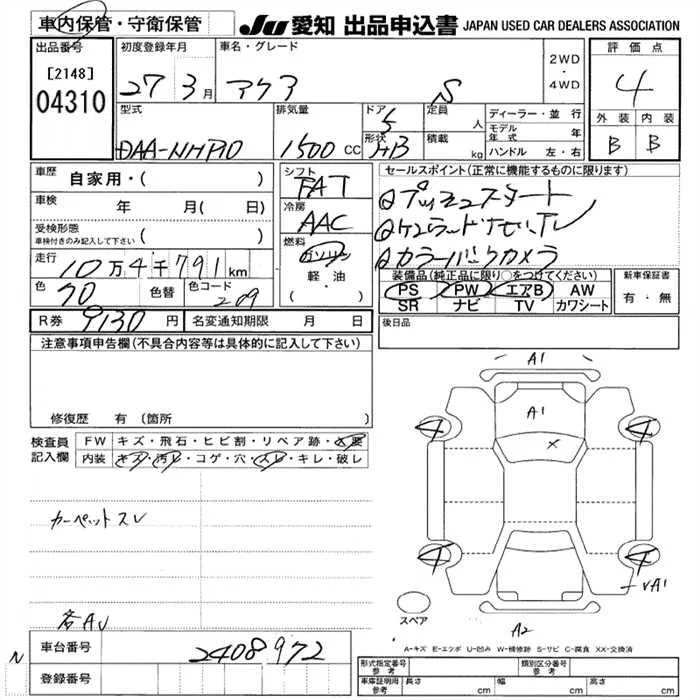 車内保管・守衛保管
JU 愛知 出品申込書 JAPAN USED CAR DEALERS ASSOCIATION
出品番号
[2148]
04310
初度登録年月
27 3月
車名・グレード
アクア S
2WD
・
4WD
評価点
4
外装 内装
B B
型式
DAA-NHP10
排気量
1500 CC
ドア
5
形状
HB
定員
人
積載
kg
ディーラー・並行
モデル年式 年
ハンドル 左・右
車歴
自家用・( )
車検 年 月( 日)
受検形態
車検付きのみ記入して下さい ( )
走行
10万4千791km
色
70
色替
色コード
209
シフト
FAT
冷房
AAC
燃料
ガソリン
・
軽・油
( )
セールスポイント(正常に機能するものに限ります)
プッシュスタート
ナビTV
カラーバックカメラ
装備品(純正品に限り○をつけてください)
PS PW エアB AW
SR ナビ TV カワシート
新車保証書
有・無
R券 9130円
名変通知期限 月 日
後日品
注意事項申告欄(不具合内容等は具体的に記入して下さい)
修復歴 有(箇所 )
検査員
記入欄
FW キズ・飛石・ヒビ割・リペア跡・X要
内装 キズ・汚レ・コゲ・穴・スレ・キレ・破レ
カーペットスレ
各AU
A1
A1
X
4 4
4 4
A1
A2
スペア
A-キズ E-エクボ U-凹み W-補修跡 S-サビ C-腐食 XX-交換済
N
車台番号 2408972
登録番号
形式指定番号
参考
類別区分番号
参考
車庫証明用
参考
長さ cm 幅 cm 高さ cm